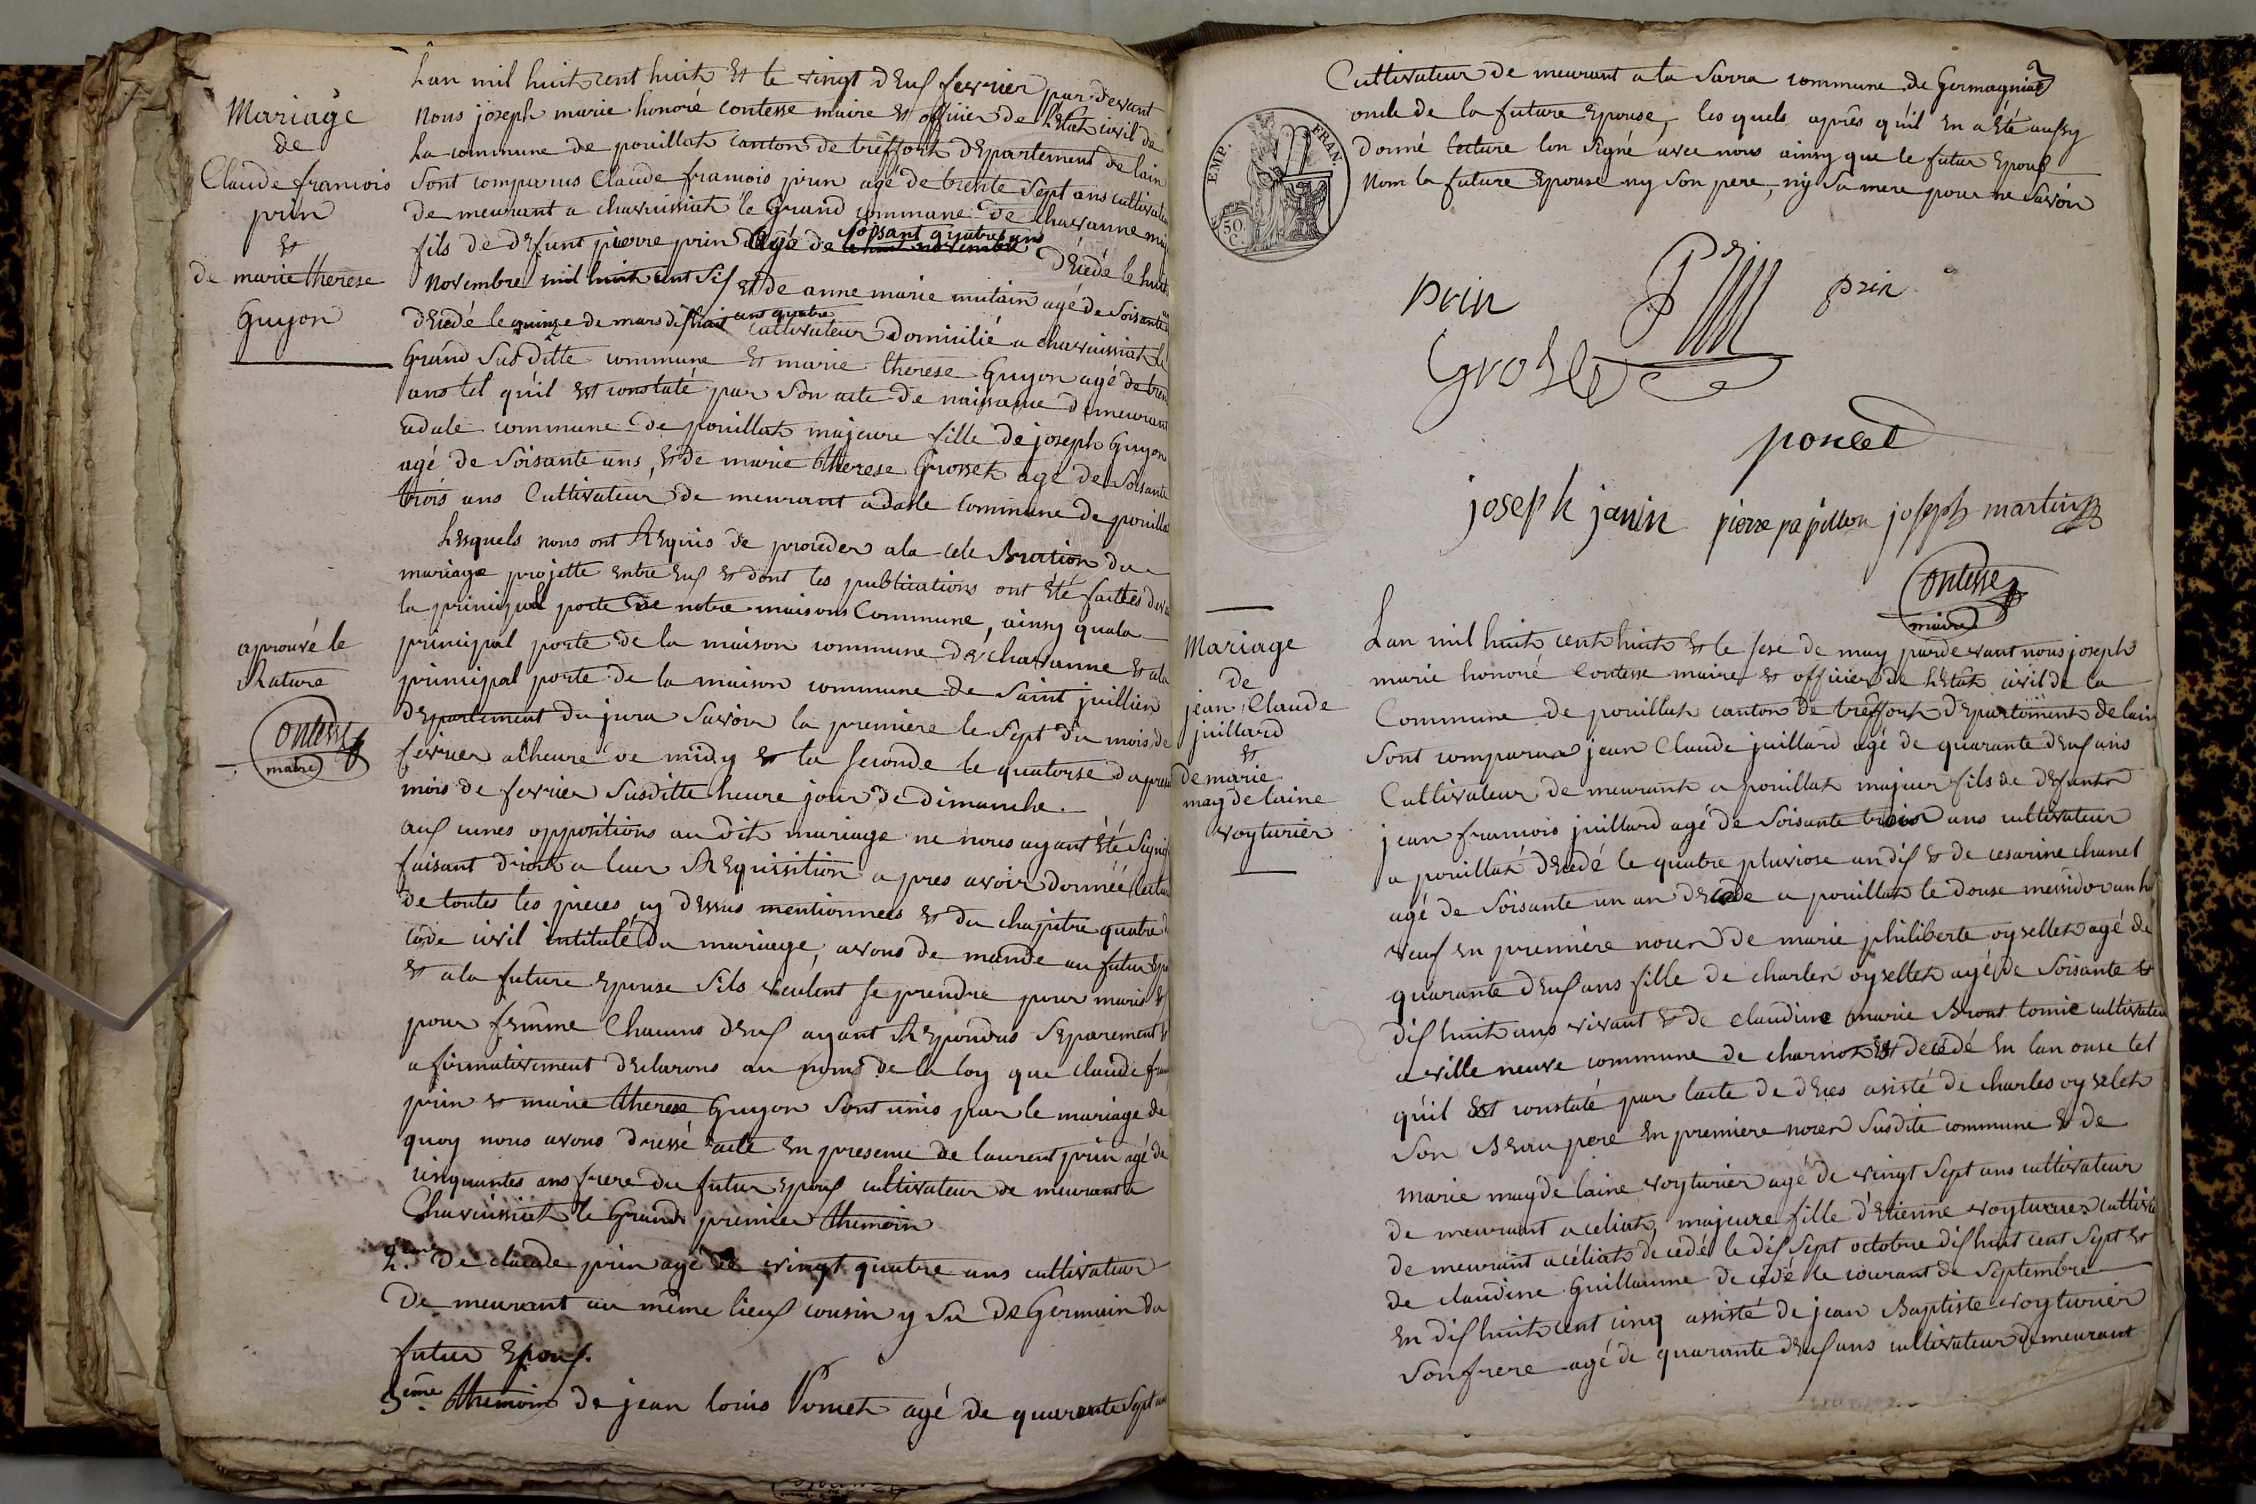 Mariage
de
Claude francois
prin
et
de marie therese
Guyon
Lan mil huit cent huit et le vingt deuf fevrier par devant
nous joseph marie honoré contesse maire et officier de létat civil de
la commune de pouillat canton de treffort département de lain
sont comparus Claude francois prin agé de trente sept ans cultivateur
de meurant a chavuissiat le Grand commune de chavanne
fils de défunt pierre prin agé de soisant quatre ans décédé le huit
novembre mil huit cent sif et de anne marie mutain agé de soisante
décédé le quinze de mars dif huit cent quatre cultivateur domicilié a chavuissiat le
Grand susditte commune et marie therese Guyon agé de
ans tel quil est constaté par son acte de naissance demeurant
adale commune de pouillat majeure fille de joseph Guyon
agé de soisante ans, et de marie therese Grosset agé de soisante
trois ans Cultivateur de meurant adalle commune de pouillat
Lesquels nous ont Requis de proceder ala cele Bration du
mariage projetté entre euf et dont les publications ont été faittes
la principal porte de notre maisons Commune, ainsy quala
principal porte de la maison commune de chavanne et ala
principal porte de la maison commune de saint jullien
département du jura savoir la premiere le sept du mois de
fevrier alheure de midy et la seconde le quatorse du
mois de fevrier susditte heure jour de dimanche.
auf cunes oppositions au dit mariage ne nous ayant été
faisant droit a leur Requisition apres avoir donnéé
de toutes les pieces cy dessus mentionnees et du chapitre quatre
code civil intitulé du mariage, avons de mande au futur
et ala future Epouse sils veulent se prendre pour maris et
pour femme Chacuns deuf ayant Répondus séparement
afirmativement déclarons au noms de la loy que claude
prin et marie therese Guyon sont unis par le mariage de
quoy nous avons dressé acte en presence de laurent prin agé de
cinquantes ans frere du futur Epouf cultivateur de meurant a
Chavuissiat le Grand premier themoin
2eme De claude prin agé de vingt quatre ans cultivateur
De meurant au même lieuf cousin y su de Germain du
futur Epouf.
3eme themoin de jean louis Poncet agé de quarante sept ans
aprouvé le
Rature
Contesse
maire
Cultivateur de meurant a la Sarra commune de Germagniat
oncle de la future Epouse, les quels après quil en a été aussy
donné lecture lon signé avec nous ainsy que le futur Epouf
Nom la future Epouse ny son pere, ny sa mere pour ne savoir
EMP. FRAN.
50 C.
prin
prin
Grosset
poncet
joseph janin pierre papillon joseph martin
Contesse
maire
Mariage
de
jean Claude
juillard
et
de marie
magdelaine
voyturier
Lan mil huit cent huit et le sese de may pardevant nous joseph
marie honoré Contesse maire et officier de létat civil de la
Commune de pouillat canton de treffort département de lain
sont comparus jean Claude juillard agé de quarante deuf ans
Cultivateur de meurant a pouillat majeur fils de défunt
jean francois juillard agé de soisante trois ans cultivateur
a pouillat décédé le quatre pluviose an dif et de cesarine chanel
agé de soisante un an décédé a pouillat le douse messidor an
veuf en première noces de marie philiberte oysellet agé de
quarante deuf ans fille de charles oysellet agé de soisante et
dif huit ans vivant et de claudine marie Bront tomie cultivateur
a ville neuve commune de charnot et décédé en lan onse tel
quil est constaté par lacte de dèces asisté de charles oyselet
son Beau pere en premiere noces susdite commune et de
marie magdelaine voyturier agé de vingt sept ans cultivateur
de meurant a celiat, majeure fille d'étienne voyturier
de meurant a céliat décédé le dif sept octobre dif huit cent sept et
de claudine Guillaume décédé le courant de septembre
en dif huit cent cinq assisté de jean Baptiste voyturier
son frere agé de quarante deuf ans cultivateur demeurant